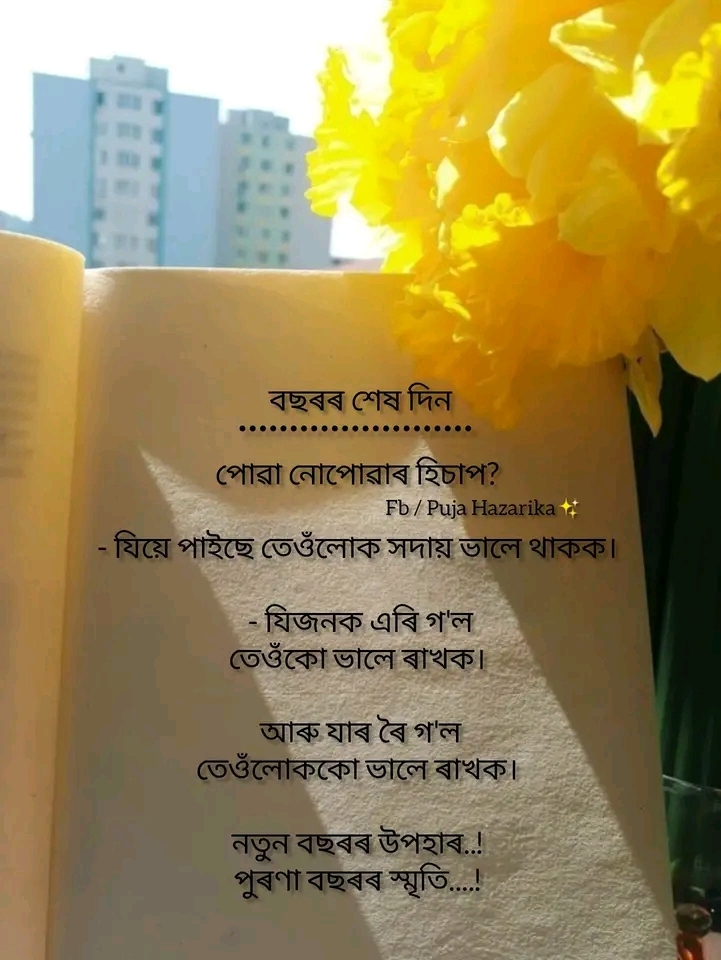 বছৰৰ শেষ দিন
.......................
পোৱা নোপোৱাৰ হিচাপ?
Fb / Puja Hazarika✨
- যিয়ে পাইছে তেওঁলোক সদায় ভালে থাকক।
- যিজনক এৰি গ'ল
তেওঁকো ভালে ৰাখক।
আৰু যাৰ ৰৈ গ'ল
তেওঁলোককো ভালে ৰাখক।
নতুন বছৰৰ উপহাৰ..!
পুৰণা বছৰৰ স্মৃতি....!